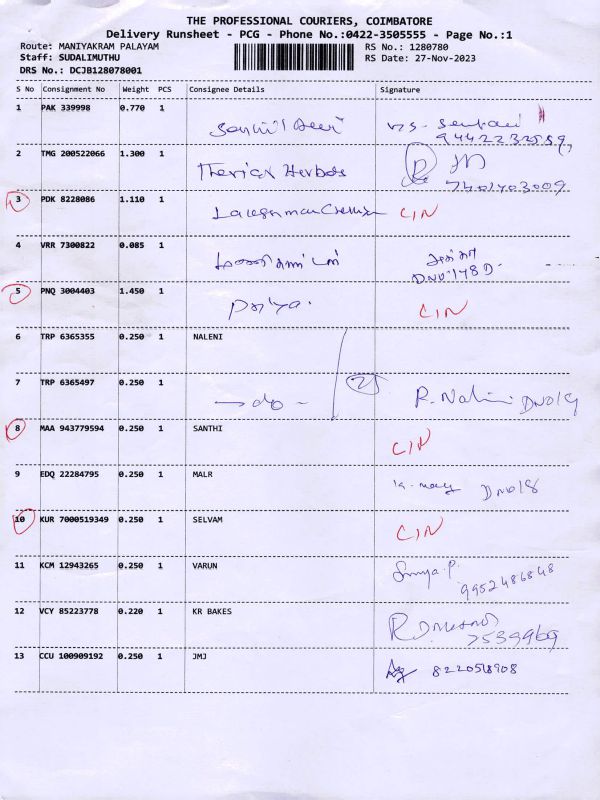 THE PROFESSIONAL COURIERS, COIMBATORE
Delivery Runsheet - PCG - Phone No.:0422-3505555 - Page No.:1
Route: MANIYAKRAM PALAYAM RS No.: 1280780
Staff: SUDALIMUTHU RS Date: 27-Nov-2023
DRS No.: DCJB128078001
S No Consignment No Weight PCS Consignee Details Signature
1 PAK 339998 0.770 1
2 TMG 200522066 1.300 1 Herbals
7401703009
3 PDK 8228086 1.110 1 CIN
4 VRR 7300822 0.085 1
5 PNQ 3004403 1.450 1 Priya. CIN
6 TRP 6365355 0.250 1 NALENI
7 TRP 6365497 0.250 1 -do- (2) R. Nalini DNO19
8 MAA 943779594 0.250 1 SANTHI CIN
9 EDQ 22284795 0.250 1 MALR DNO18
10 KUR 7000519349 0.250 1 SELVAM CIN
11 KCM 12943265 0.250 1 VARUN
9952486848
12 VCY 85223778 0.220 1 KR BAKES
7539969
13 CCU 100909192 0.250 1 JMJ 8220518908